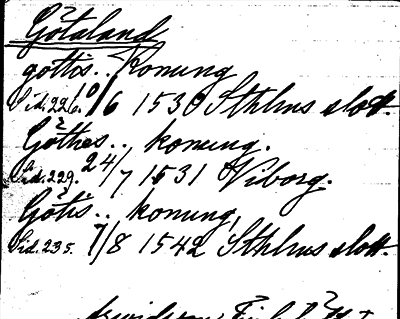 Götaland
gottis.. Konung
Sid. 226. 10/6 1530 Sthlms slott.
Göthes.. konung.
Sid. 229. 24/7 1531 Viborg.
Götis.. konung,
Sid. 235. 7/8 1542 Sthlms slott.